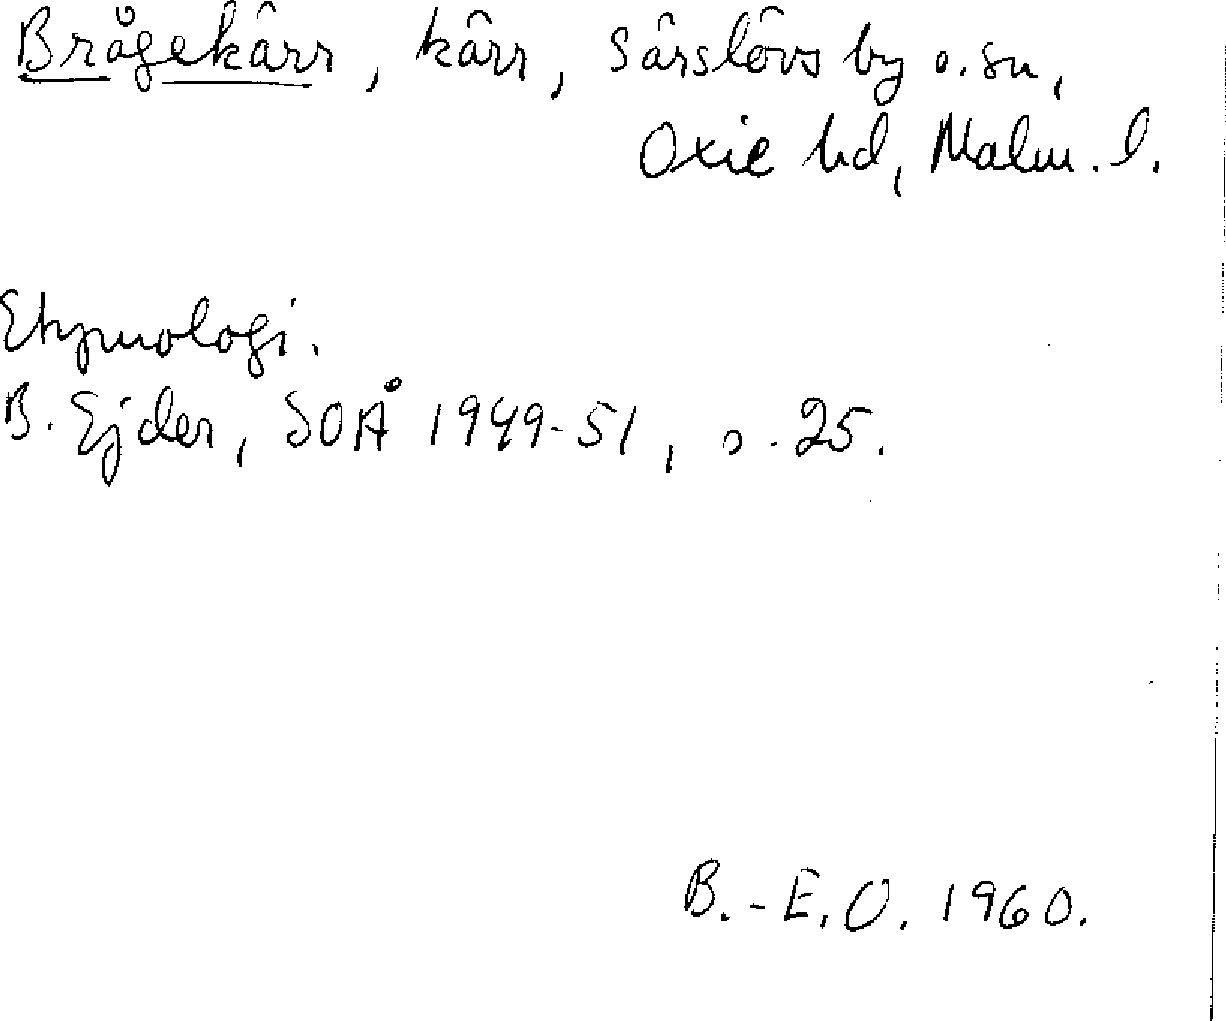 Brågekärr, kärr, Särslövs by o. sn,
Oxie hd, Malm. l.
Etymologi.
B. Ejder, SOÅ 1949-51, s. 25.
B.-E.O. 1960.